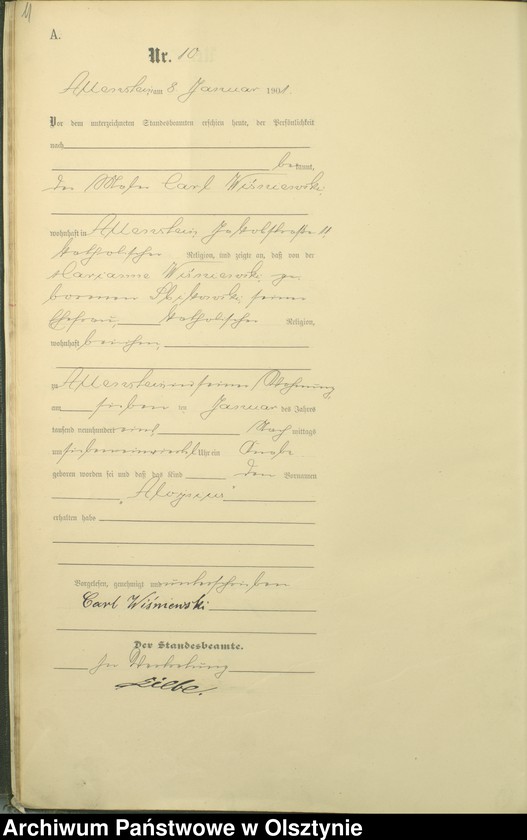 11
A.
Nr. 10
Allenstein, am 8. Januar 1901.
Vor dem unterzeichneten Standesbeamten erschien heute, der Persönlichkeit
nach
bekannt,
der Maler Carl Wiśniewski,
wohnhaft in Allenstein, Jakobstraße 11,
katholischer Religion, und zeigte an, daß von der
Marianne Wiśniewski, ge-
borenen seiner
Ehefrau, katholischer Religion,
wohnhaft bei ihm,
zu Allenstein in seiner Wohnung
am sieben ten Januar des Jahres
tausend neunhundert eins Nach mittags
um Uhr ein Knabe
geboren worden sei und daß das Kind den Vornamen
"Aloysius"
erhalten habe
Vorgelesen, genehmigt und unterschrieben
Carl Wiśniewski.
Der Standesbeamte.
In Vertretung
Archiwum Państwowe w Olsztynie